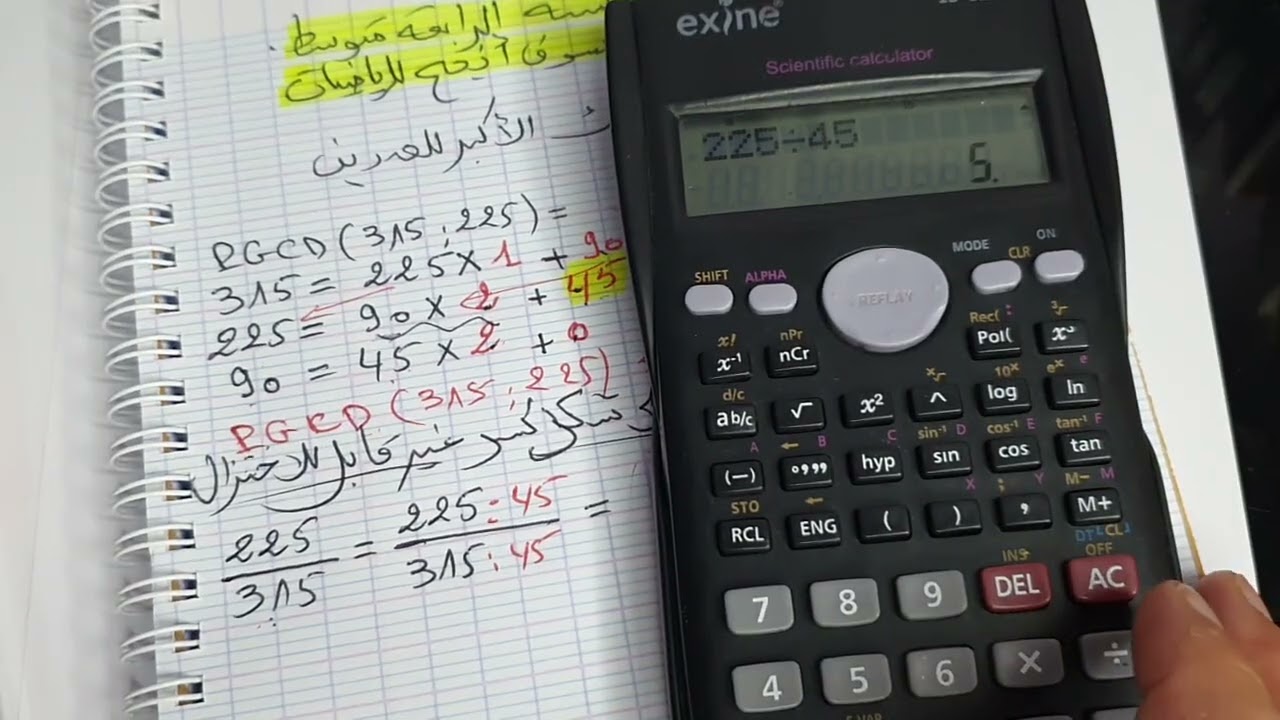 الرابعة متوسط
للرياضيات
الأكبر للعددين
PGCD(315;225)=
315 = 225 × 1 + 90
225 = 90 × 2 + 45
90 = 45 × 2 + 0
PGCD(315;225)
شكل كسر غير قابل للاختزال
225/315 = 225:45/315:45 =
exine
Scientific calculator
225÷45
5.
SHIFT ALPHA MODE CLR ON
REPLAY
x! nPr Rec( : ³√
x⁻¹ nCr Pol( x³
d/c ˣ√ 10ˣ eˣ e
ab/c √ x² ^ log ln
A ← B C sin⁻¹ D cos⁻¹ E tan⁻¹ F
(−) °,,, hyp sin cos tan
STO ← X ; Y M− M
RCL ENG ( ) , M+
INS DT CL OFF
7 8 9 DEL AC
4 5 6 × ÷